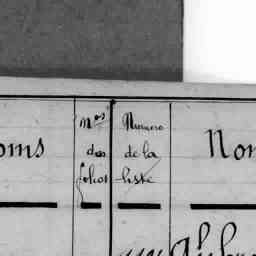 oms
Nos
des
folios
Numéro
de la
liste
Nom